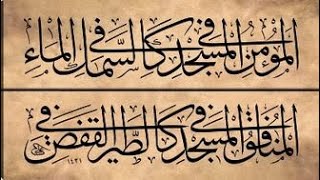 المؤمن في المسجد كالسمك في الماء
المنافق في المسجد كالطير في القفص